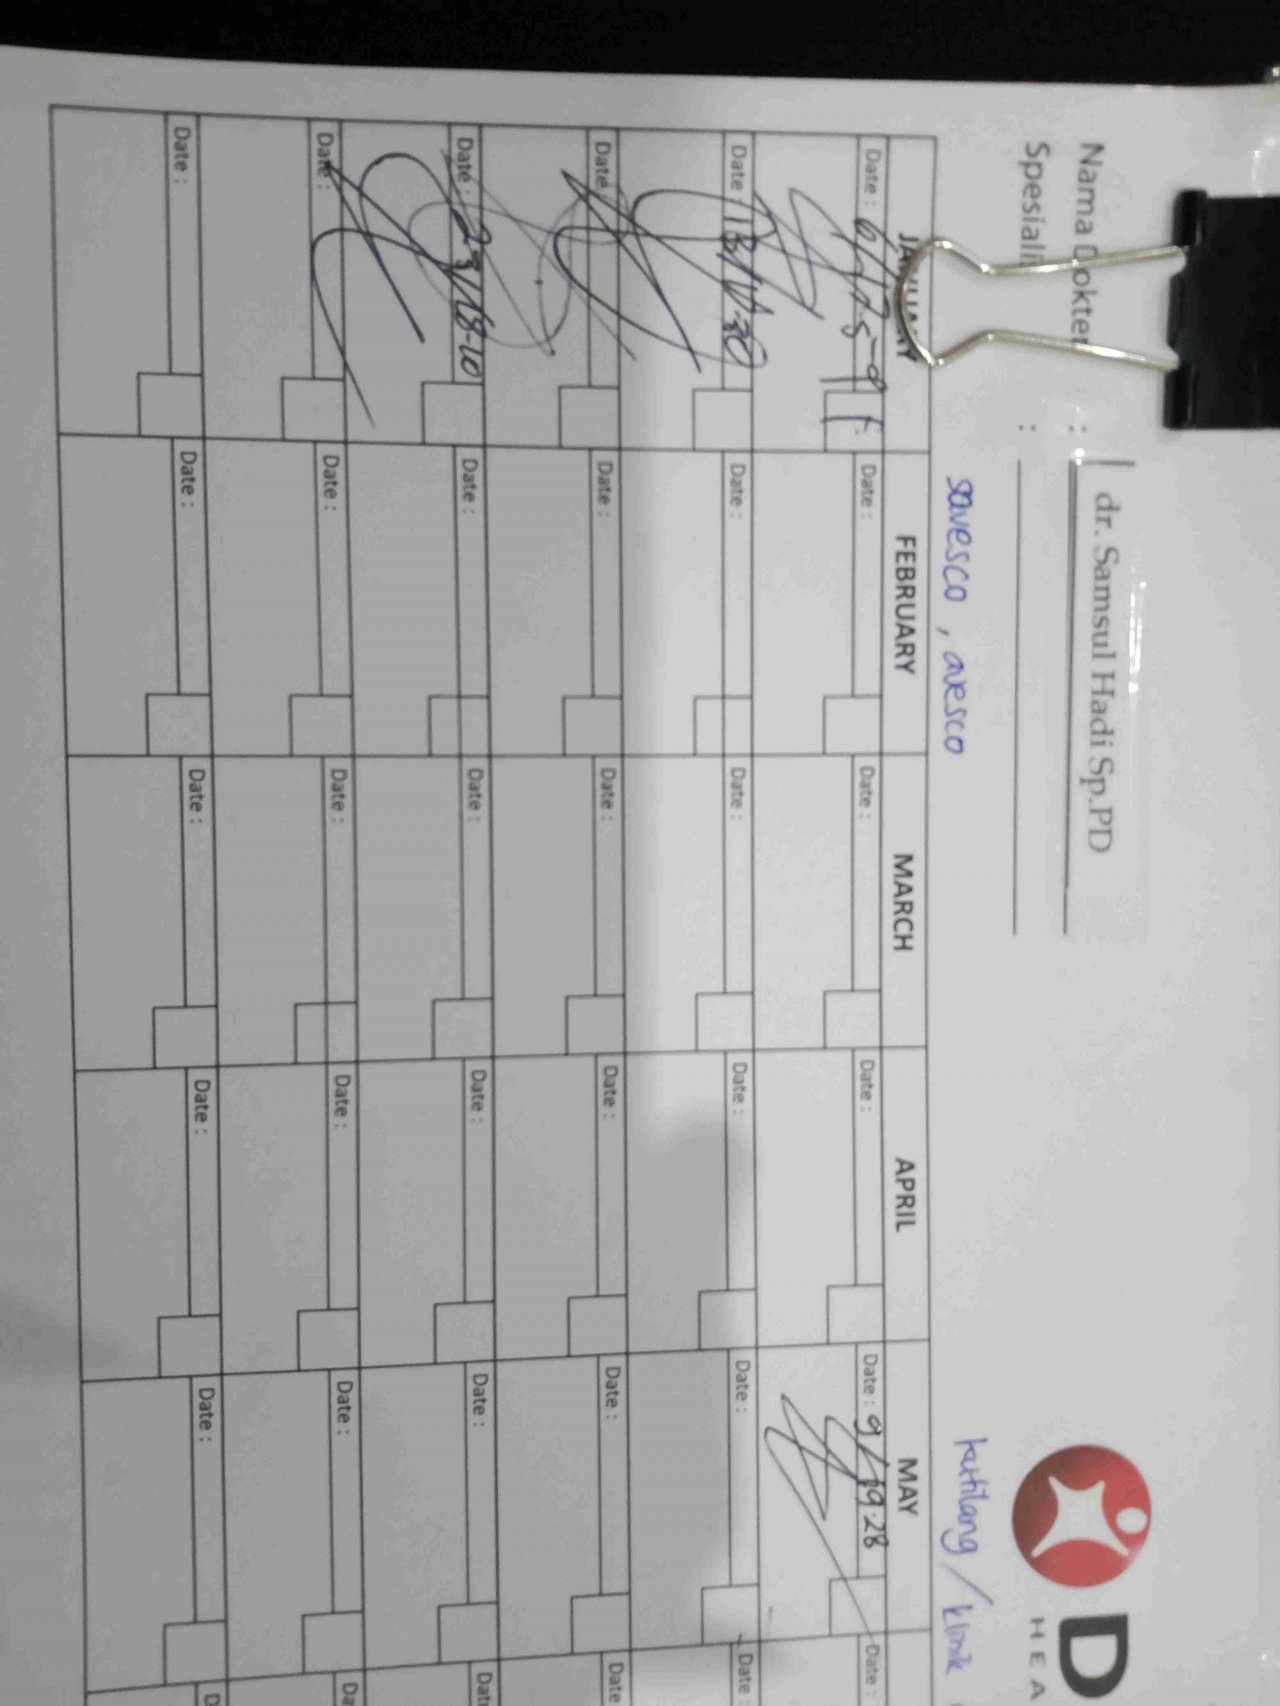 Nama Dokter : dr. Samsul Hadi Sp.PD
Spesiali :
D
HEA
savesco , avesco
kutilang / klinik
JANUARY FEBRUARY MARCH APRIL MAY
Date : Date : Date : Date : Date : 9/ 19.28 Date :
Date : Date : Date : Date : Date : Date :
Date Date : Date : Date : Date : Date
Date : 23/ 18-10 Date : Date : Date : Date : Dat
Date : Date : Date : Date : Date : Da
Date : Date : Date : Date : Date : D